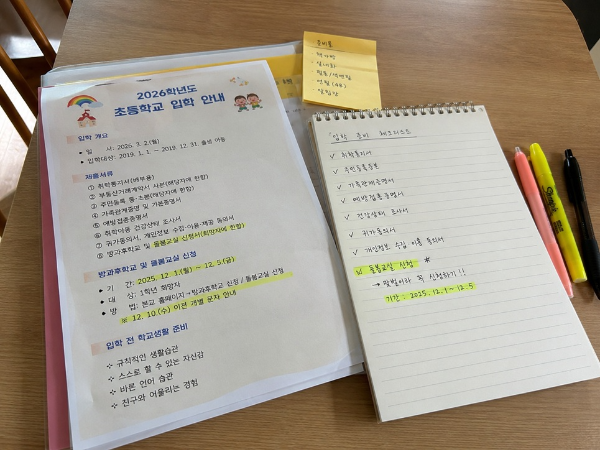 2026학년도
초등학교 입학 안내
입학 개요
• 일 시: 2026. 3. 2.(월)
• 입학대상: 2019. 1. 1. ~ 2019. 12. 31. 출생 아동
제출서류
① 취학통지서(배부용)
② 부동산거래계약서 사본(해당자에 한함)
③ 주민등록 등·초본(해당자에 한함)
④ 가족관계증명 및 기본증명서
⑤ 예방접종증명서
⑥ 취학아동 건강상태 조사서
⑦ 귀가동의서, 개인정보 수집·이용·제공 동의서
⑧ 방과후학교 및 돌봄교실 신청서(희망자에 한함)
방과후학교 및 돌봄교실 신청
• 기 간: 2025. 12. 1.(월) ~ 12. 5.(금)
• 대 상: 1학년 희망자
• 방 법: 본교 홈페이지→방과후학교 신청 / 돌봄교실 신청
※ 12. 10.(수) 이전 개별 문자 안내
입학 전 학교생활 준비
✧ 규칙적인 생활습관
✧ 스스로 할 수 있는 자신감
✧ 바른 언어 습관
✧ 친구와 어울리는 경험
준비물
• 책가방
• 실내화
• 필통/색연필
• 연필 (4B)
• 알림장
입학 준비 체크리스트
✓ 취학통지서
✓ 주민등록등본
✓ 가족관계증명서
✓ 예방접종증명서
✓ 건강상태 조사서
✓ 귀가동의서
✓ 개인정보 수집·이용 동의서
☑ 돌봄교실 신청 *
→ 맞벌이라 꼭 신청하기!!
기간: 2025. 12. 1 ~ 12. 5
Sharpie